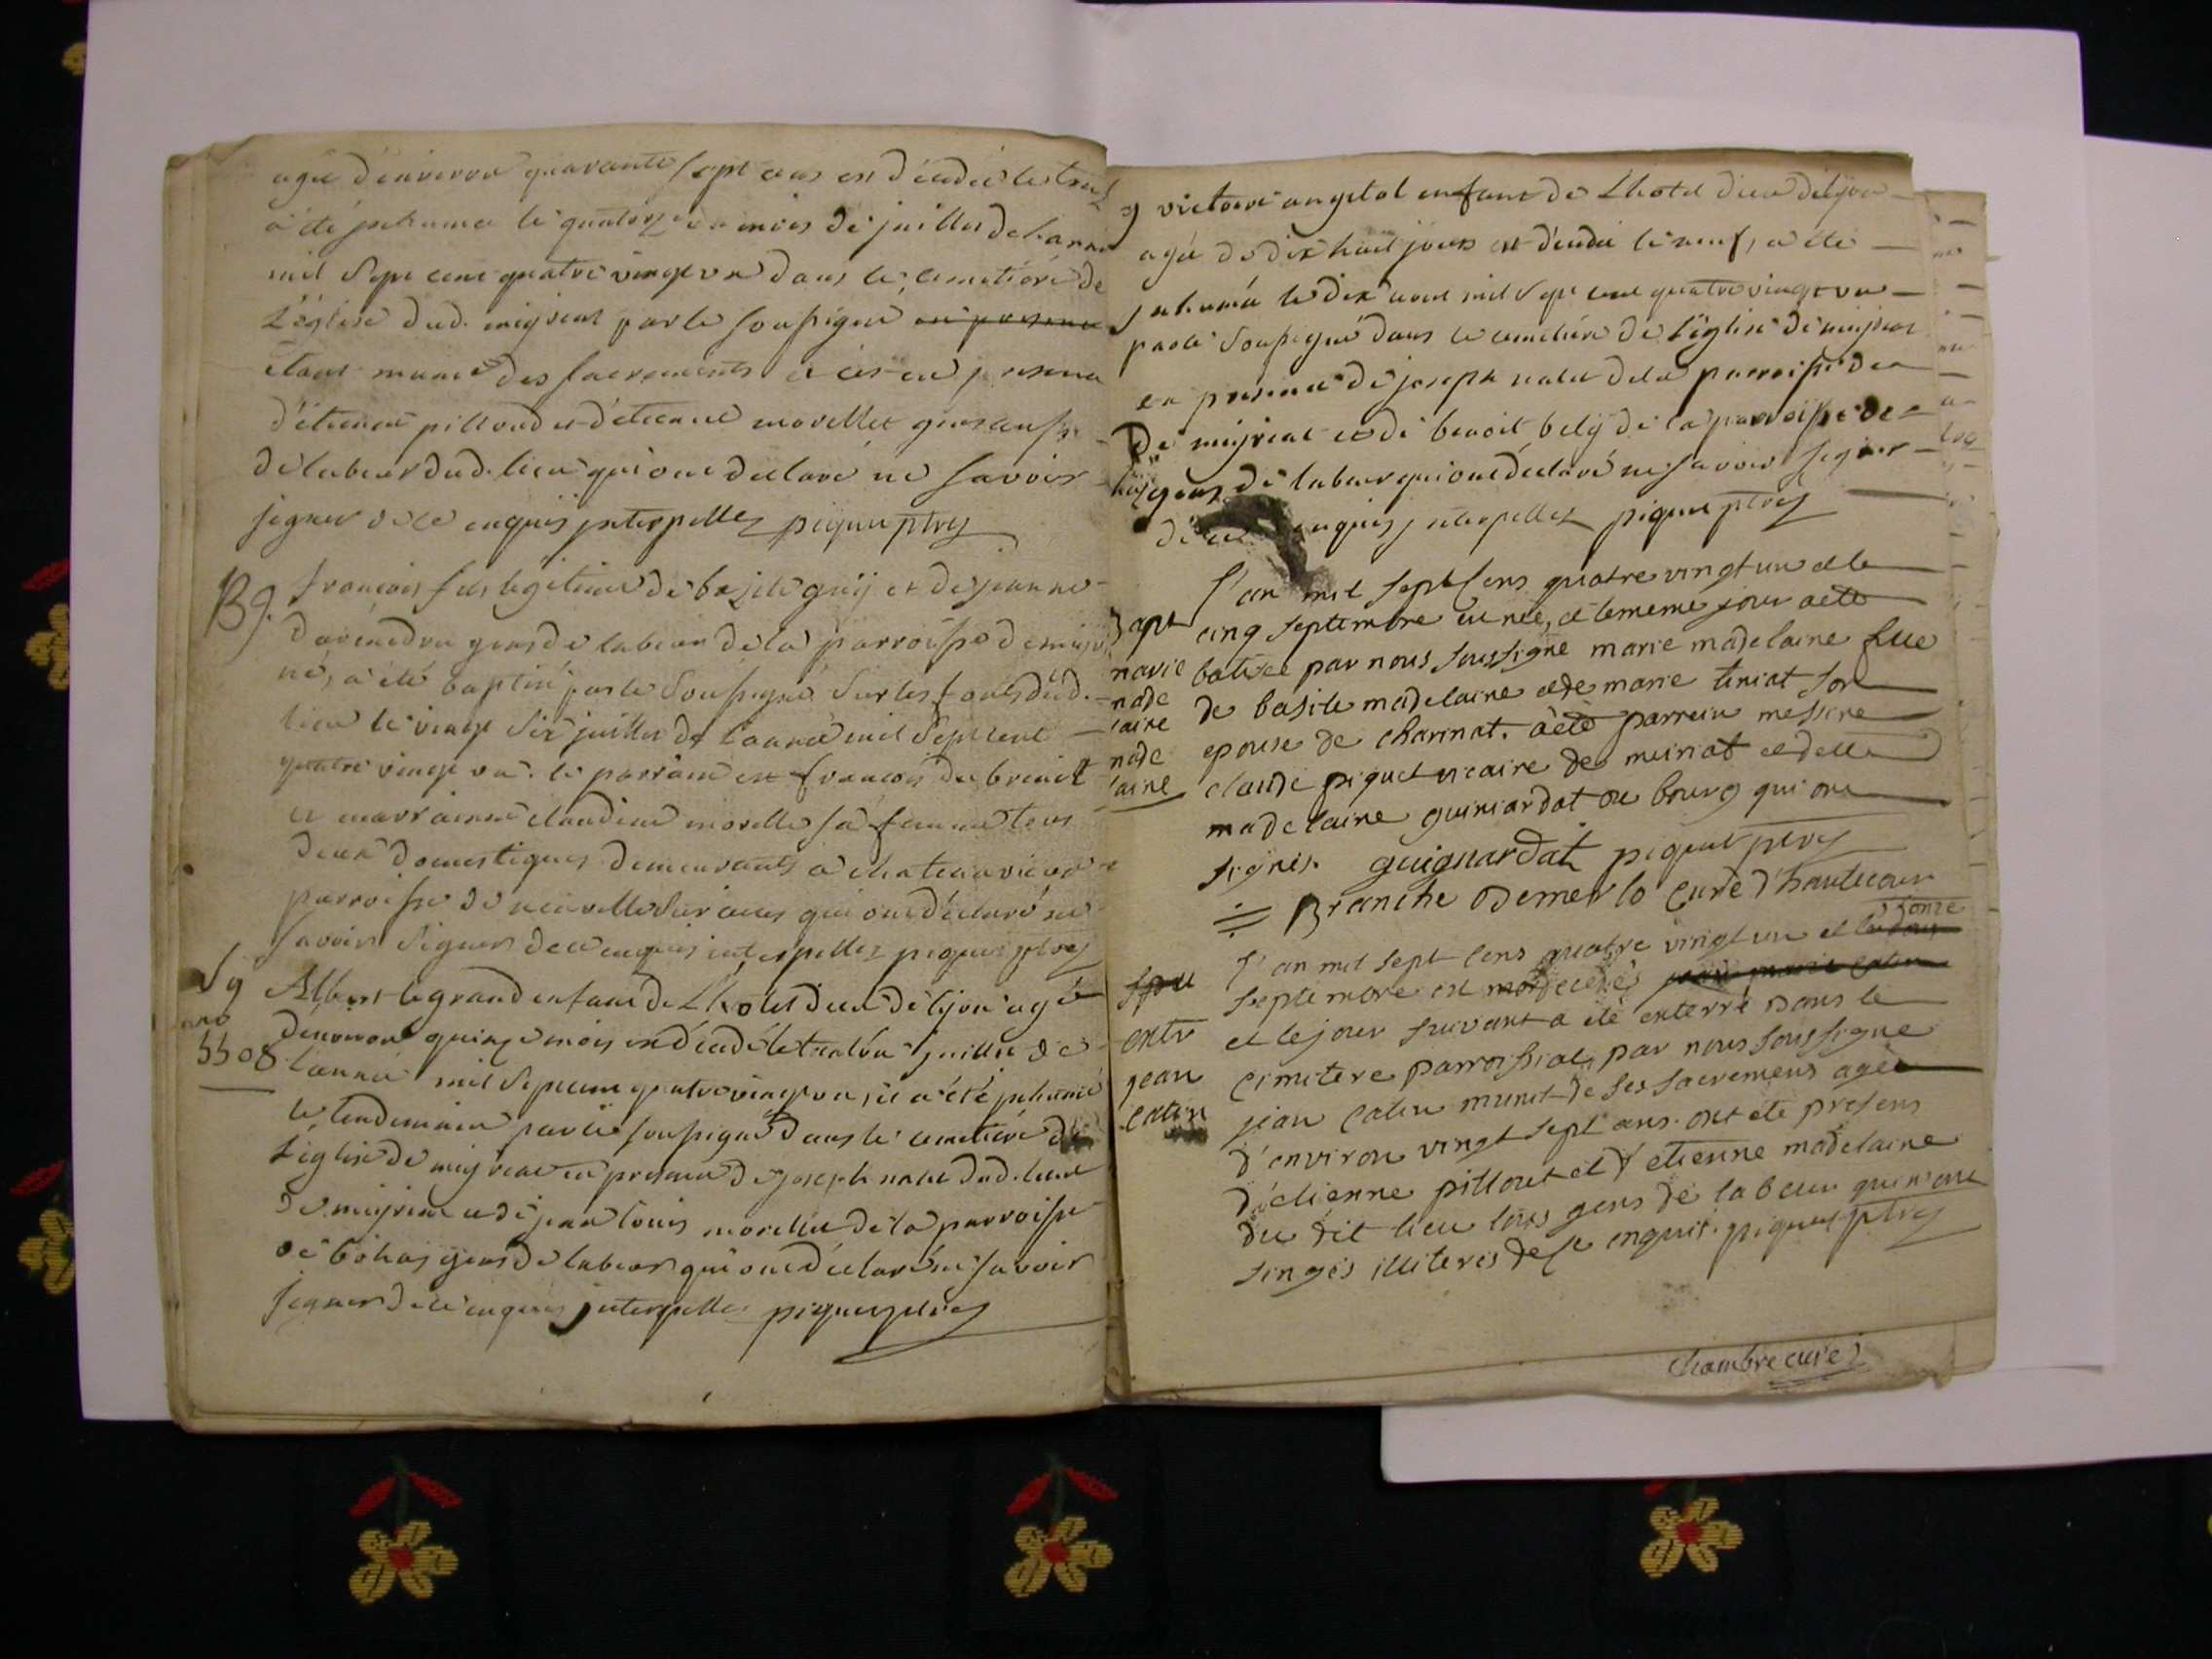 agé d'environ quarante sept ans est décédé le treiz
a été jnhumé le quatorze du mois de juillet de l'anné
mil sept cent quatre vingt un dans le cemetiére de
L'église dud. mijriat par le soussigné
étant muni des sacrements et ce en presence
d'étienne pilloud et d'étienne morellet gens
de labeur dud. lieu qui ont déclaré ne savoir
signer de ce enquis jnterpellez piquet ptre
B g. francois fils legitime de bazile guij et de jeanne
gens de labeur de la parroisse de mijr
né, a été baptisé par le soussigné sur les fonts dud.
lieu le vingt six juillet de l'anné mil sept cent
quatre vingt un. le parrain est francois du breuil
et marrainne claudine morellet sa femme tous
deux domestiques demeurants a chateauvieux
parroisse de neuville sur ains qui ont déclaré ne
savoir signer de ce enquis interpellez piquet ptre
S g Albert le grand enfant de L'hotel dieu de lijon agé
nro d'environ quinze mois est décédé le trente un juillet de
5508 l'anné mil sept cent quatre vingt un, et a été jnhumé
le lendemain par le soussigné dans le cemetiére de
L'église de mijriat en presence de joseph nalet dud. lieu
de mijriat et de jean louis morellet de la parroisse
de bohas gens de labeur qui ont déclaré ne savoir
signer de ce enquis jnterpellez piquet ptre
g victoire angetol enfant de L'hotel dieu de lijon
agé de dix huit jours est décédé le neuf, a été
jnhumé le dix aout mil sept cent quatre vingt un
par le soussigné dans le cemetiére de l'église de mijriat
en presence de joseph nalet de la parroisse de
de mijriat et de benoit belij de la parroisse de
gens de labeur qui ont déclaré ne savoir signer
de ce enquis jnterpellez piquet ptre
l'an mil sept cens quatre vingt un et le
Bapt cinq septembre est née, et le meme jour a eté
marie batisée par nous soussigné marie madelaine fille
made de basile madelaine et de marie teniat son
laine epouse de charinat. a été parrein messire
made claude piquet vicaire de meiriat et delle
laine madelaine guiniardat de bourg qui ont
signés. guignardat piquet ptre
Branche Demerlo Curé d'hautecour
l'an mil sept cens quatre vingt un et le onze
Spu septembre est décédé
et le jour suivant a été enterré dans le
entr cimetere parroissial par nous soussigné
jean jean catin munit de ses sacremens agée
catin d'environ vingt sept ans. ont eté presens
d'etienne pillout et d'etienne madelaine
du dit lieu tous gens de labeur qui n'ont
singés illiterés de ce enquis. piquet ptre
Chambre curé